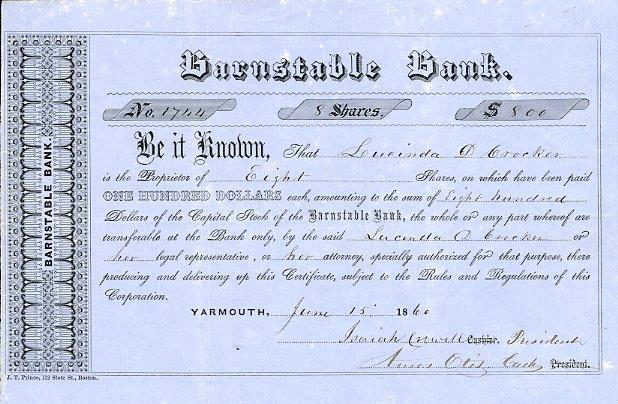 Barnstable Bank.
No. 1744 8 Shares. $ 800
Be it Known, That Lucinda D Crocker
is the Proprietor of Eight Shares, on which have been paid
ONE HUNDRED DOLLARS each, amounting to the sum of Eight hundred
Dollars of the Capital Stock of the Barnstable Bank, the whole or any part whereof are
transferable at the Bank only, by the said Lucinda D Crocker or
her legal representative, or her attorney, specially authorized for that purpose, there
producing and delivering up this Certificate, subject to the Rules and Regulations of this
Corporation.
YARMOUTH, June 15 1860
Isaiah Crowell Cashier. President
Amos Otis, Cash President.
BARNSTABLE BANK.
J. T. Prince, 112 State St., Boston.